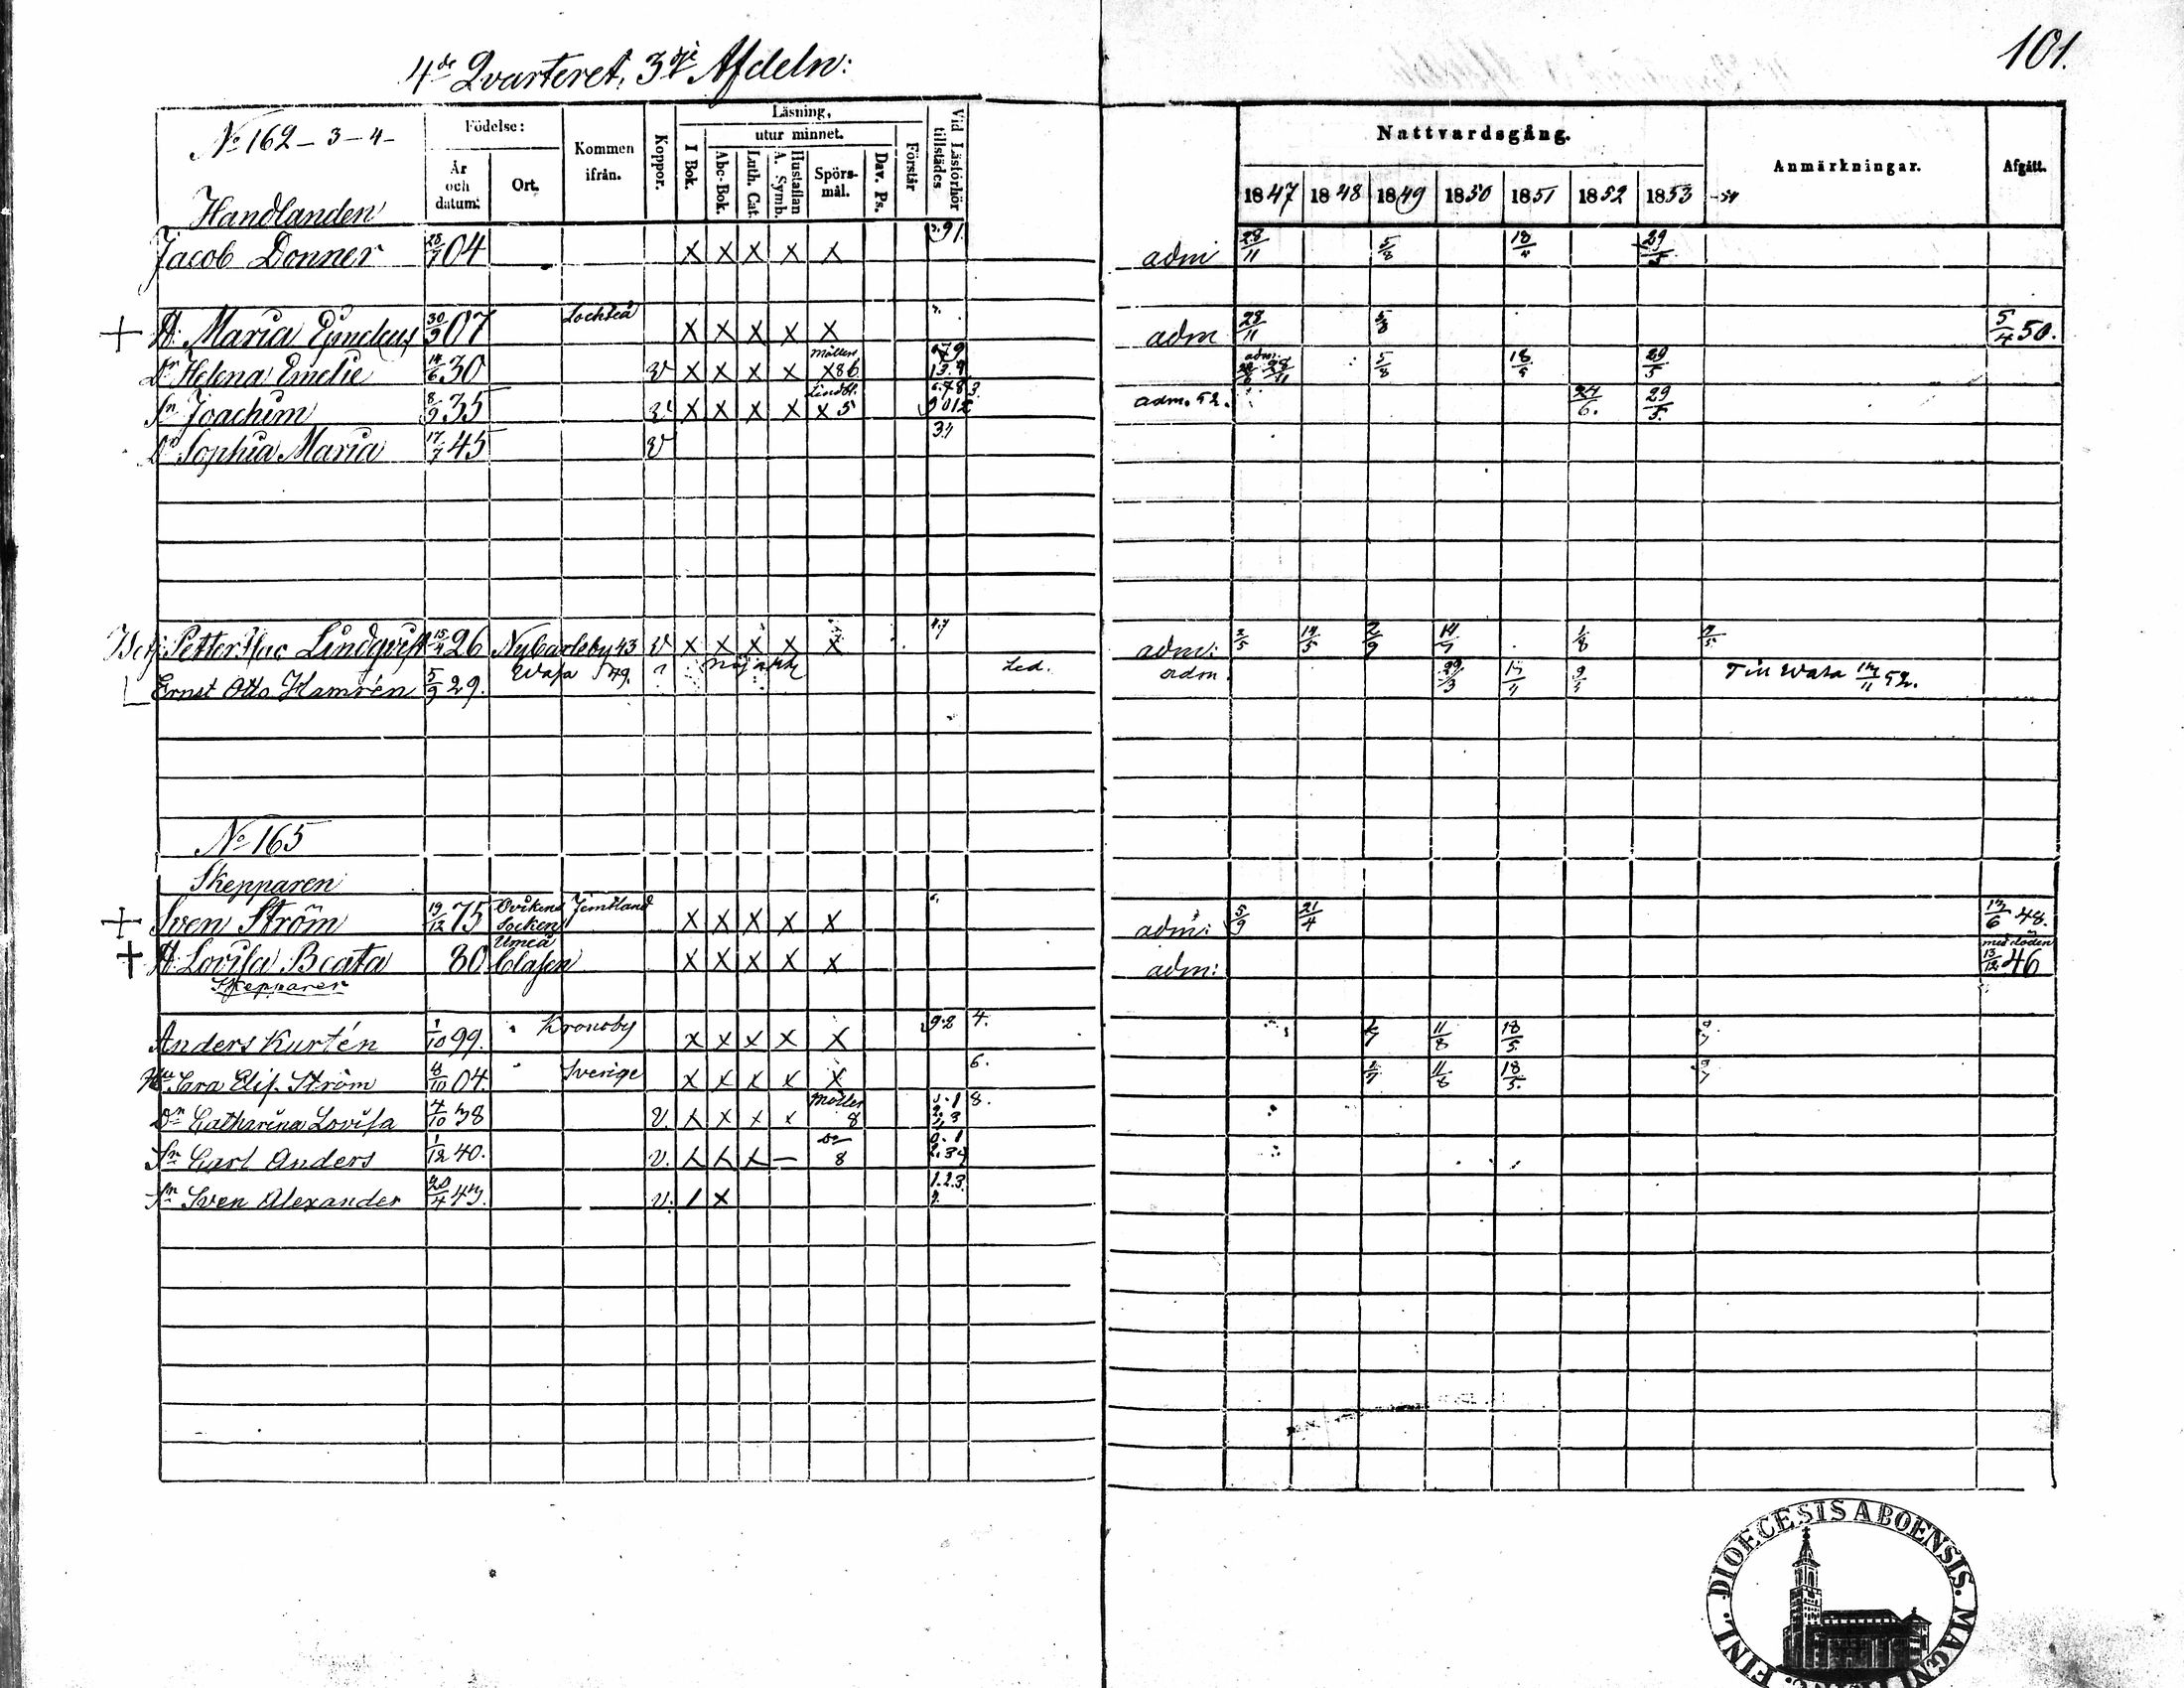 4de Qvarteret, 3dje Afdeln:
101.
No 162-3-4-
Födelse:
År och datum:
Ort.
Kommen ifrån.
Koppor.
Läsning,
utur minnet.
I Bok.
Abc-Bok.
Luth. Cat.
Hustaflan A. Symb.
Spörsmål.
Dav. Ps.
Förstår
Vid Läsförhör tillstädes
Nattvardsgång.
1847 1848 1849 1850 1851 1852 1853 -54
Anmärkningar.
Afgått.
Handlanden
Jacob Donner 04 X X X X X adm 28/11 5/8 29/5
+ H. Maria 30/9 07 Lochteå X X X X X adm 28/11 5/8 5/4 50.
Dr Helena Emelie 14/6 30 v X X X X X 86 adm: 28/11 5/8 29/5
Sn Joachim 8/9 35 v X X X X X 5 adm. 52. 24/6. 29/5
Dr Sophia Maria 17/7 45 v
Betj: Petter Isac Lindqvist 26 NyCarleby 43 v X X X X X adm: 2/5 14/5 2/9
Ernst Otto Hamrén 5/9 29. Wasa 49. Led. adm Till Wasa 52.
No 165
Skepparen
+ Sven Ström 19/12 75 Ovikens Socken Jemtland X X X X X adm: 5/9 21/4 48.
+ H. Lovisa Beata 80 Umeå Clasen X X X X X adm: med döden 13/12 46
Skepparen
Anders Kurtén 1/10 99. Kronoby X X X X X 9.2 4. 11/8 18/5
Hu Sara Elis. Ström 8/10 04. Sverige X X X X X 6. 11/8 18/5.
Dr Catharina Lovisa 4/10 38 v. X X X X 8 8.
Sn Carl Anders 1/12 40. v. X X X — 8
Sn Sven Alexander 20/4 43. v. 1 X 1.2.3.
DIOECESIS ABOENSIS. MAGNI
FINL.